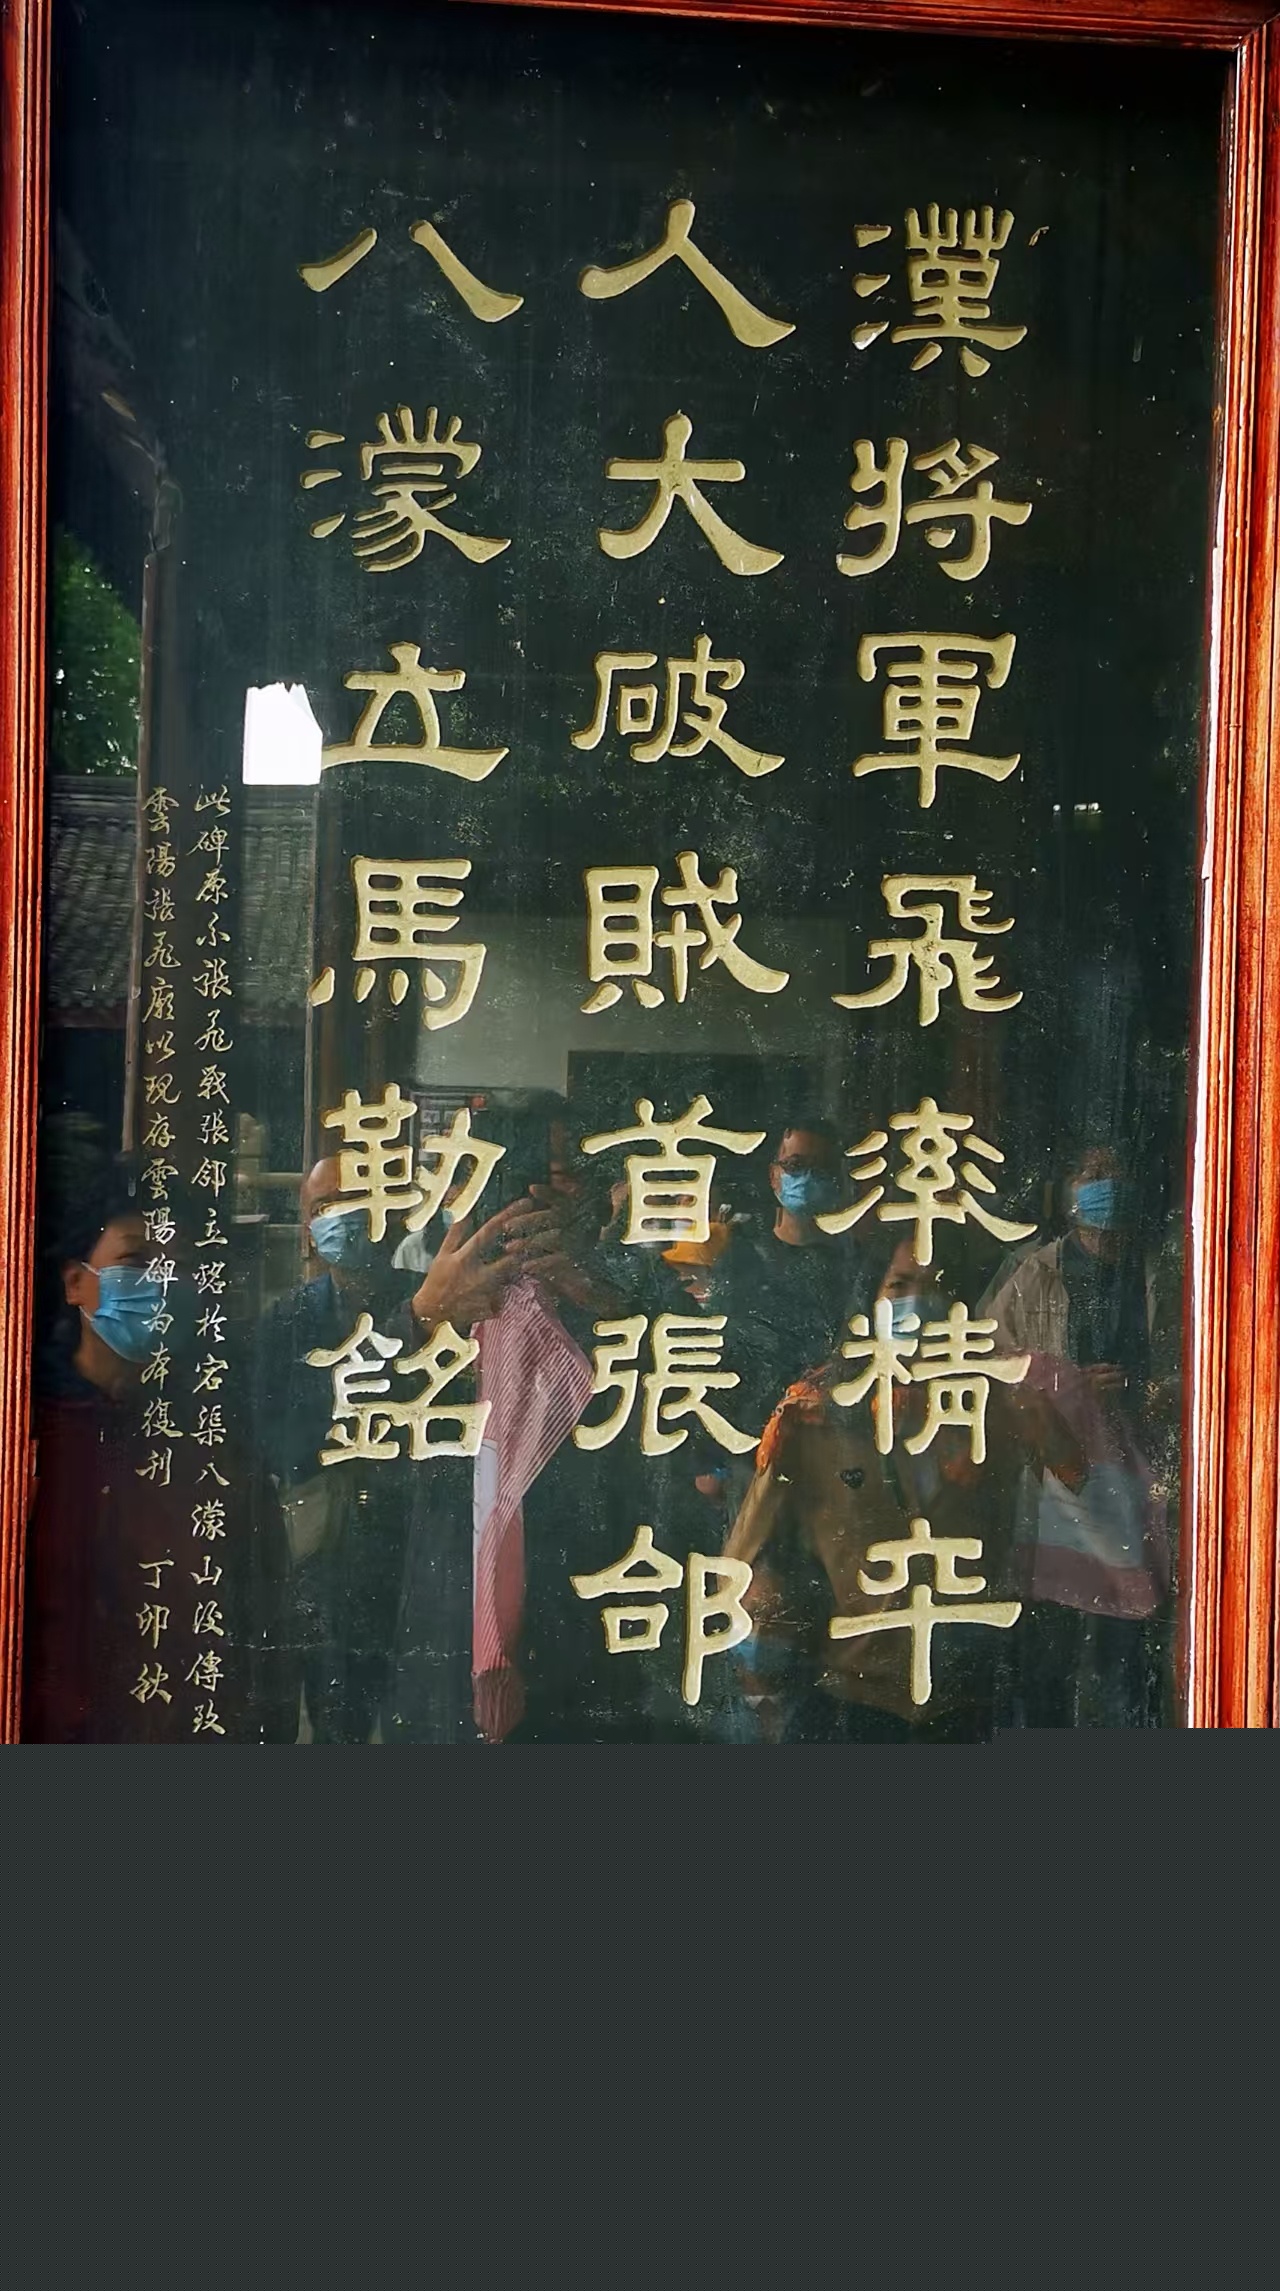 漢將軍飛率精卒
人大破賊首張郃
八濛立馬勒銘
此碑原系張飛戰張郃立銘於宕渠八濛山後傳致
雲陽張飛廟以現存雲陽碑为本復刊 丁卯秋